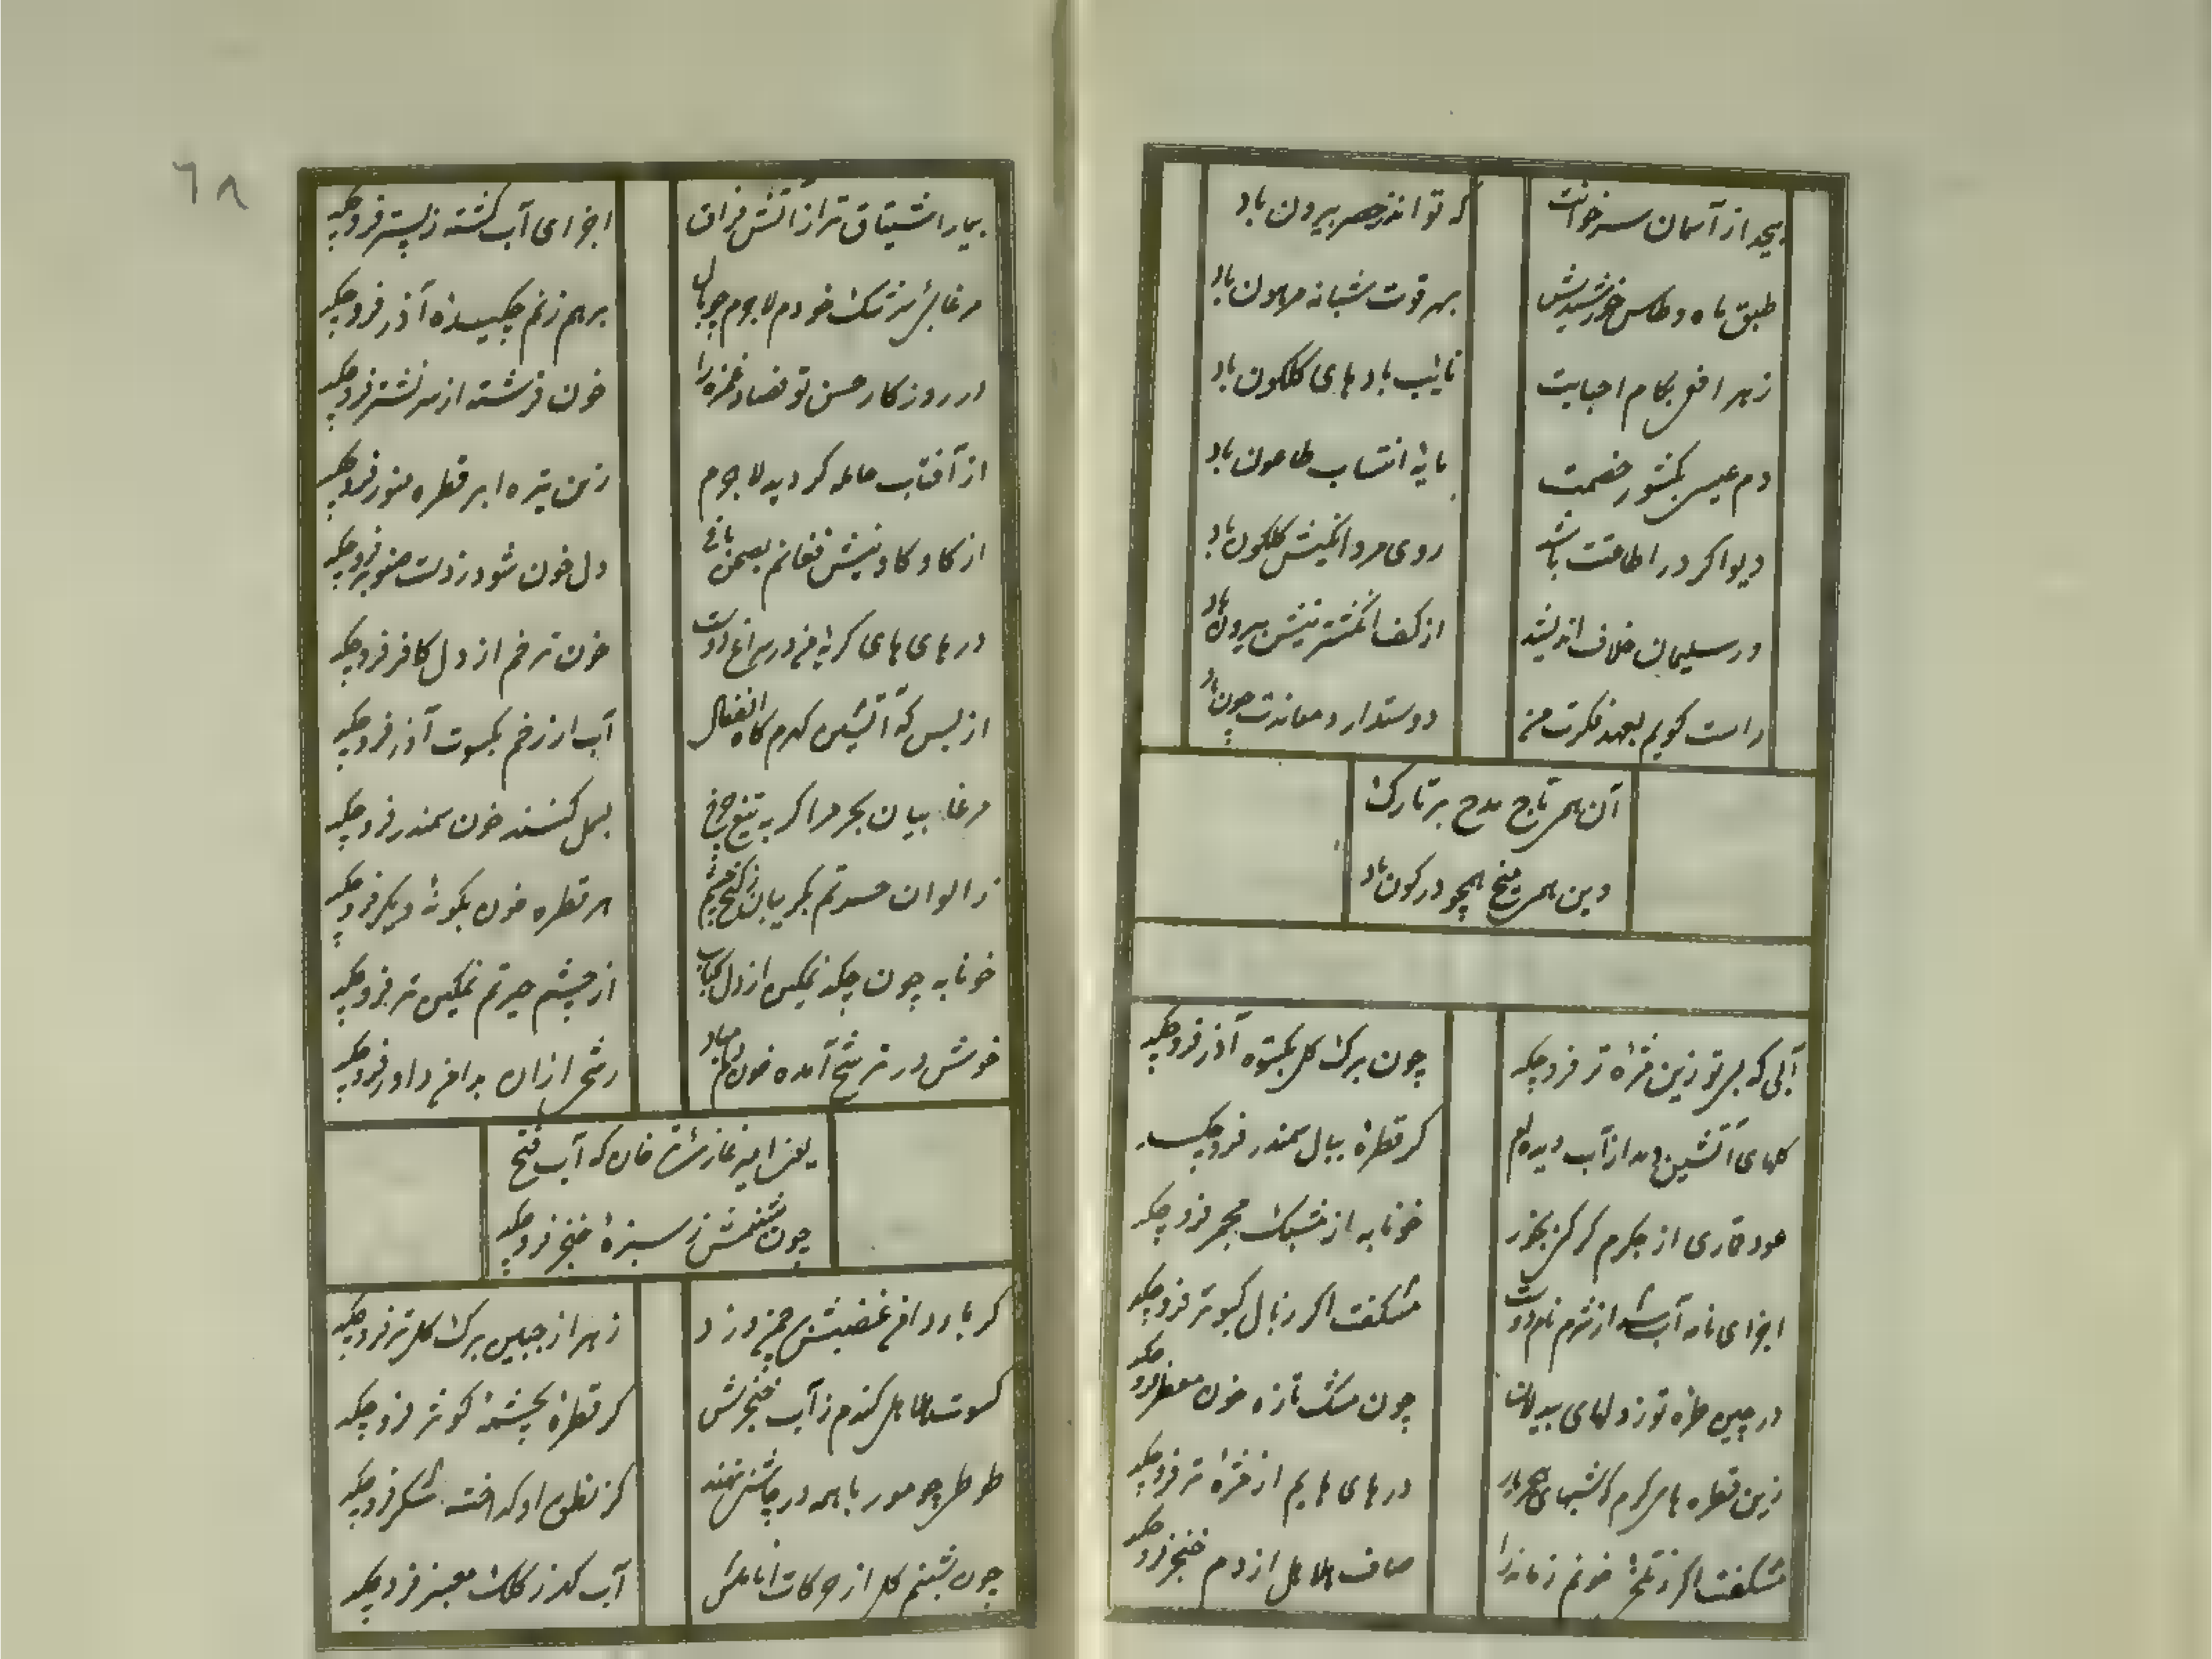 هیچد از آسمان سر خوانت
که تواند ز حصر بیرون باد
طبق ماه و طاس خورشیدش
بهر قوت شبانه مرهون باد
زهر افعی بکام احبابت
نایب بادهای گلگون باد
دم عیسی بکشور خصمت
مایهٔ انتساب طاعون باد
دیو اگر در اطاعتت باشد
روی مرد انگیش گلگون باد
ور سلیمان خلاف اندیشد
از کف انگشترینش بیرون باد
راست گویم بعهد فکرت من
دوستدار و معاندت چون باد
آن همی تاج مدح بر تارک
وین همی میخ هجو در کون باد
آبی که بی تو زین مژهٔ تر فرو چکد
چون برگ گل بکسوة آذر فرو چکد
گلهای آتشین دمد از آب دیده‌ام
گر قطرهٔ ببال سمندر فرو چکد
عود قماری از جگرم گر کنی بخور
خونابه از مشبک مجمر فرو چکد
اجزای نامه آب شد از شرم نام دوست
نشگفت اگر ز بال کبوتر فرو چکد
در چین طرهٔ تو ز دلهای بیدلان
چون مشک تازه خون معطر فرو چکد
زین قطره های گرم که شبهای هجر یار
در های هایم از مژهٔ تر فرو چکد
نشگفت اگر ز تلخی خونم زمانه را
صاف هلاهل از دم خنجر فرو چکد
٦٨
بیمار اشتیاق ترا ز آتش فراق
اجزای آب گشته ز بستر فرو چکد
مرغابی سرشک خودم لاجرم چو بال
بر هم زنم چکیدهٔ آذر فرو چکد
در روزگار حسن تو فصاد غمزه را
خون فرشته از سر نشتر فرو چکد
از آفتاب حامله گردید لاجرم
زین تیره ابر قطره منور فرو چکد
از کاو کاو نیش فغانم بصحن باغ
دل خون شود ز دست صنوبر فرو چکد
در های های گریه من در سراغ دوست
خون ترحم از دل کافر فرو چکد
از بس که آتشین گهرم گاه انفعال
آب از رخم بکسوت آذر فرو چکد
مرغابیان بحر مرا گر به تیغ چرخ
بسمل کنند خون سمندر فرو چکد
ز الوان حسرتم بگریبان ز کنج چشم
هر قطره خون بگونهٔ دیگر فرو چکد
خونابه چون چکد نمکین از دل کباب
از چشم حیرتم نمکین تر فرو چکد
خوش در ترشح آمده خون دلم مباد
رشحی ازان بدامن داور فرو چکد
یعنی امیر غازی خان که آب فتح
چون شبنمش ز سبزهٔ خنجر فرو چکد
گر باد دامن غضبش بر چمن وزد
زهر از جبین برگ گل تر فرو چکد
کسوت هلاهل کندم ز آب خنجرش
گر قطرهٔ بچشمهٔ کوثر فرو چکد
طوطی چو مور با همه در چاشنی نهند
کز نطق او گداخته شکر فرو چکد
چون شبنم گل از حرکات اناملش
آب گهر ز کلک معنبر فرو چکد